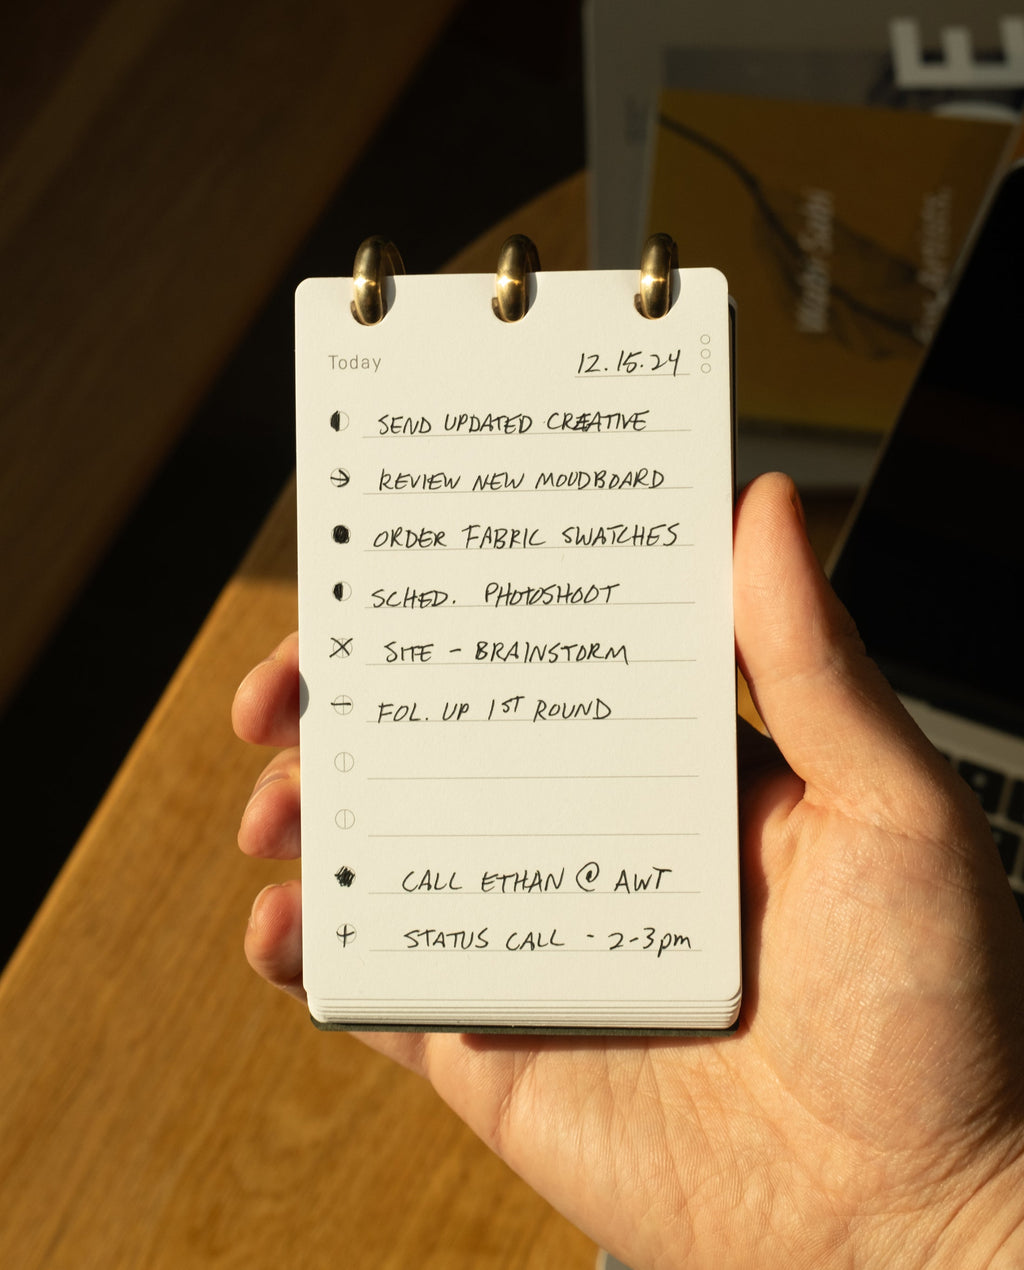 E
Wabi-Sabi
Today
12.15.24
SEND UPDATED CREATIVE
REVIEW NEW MOODBOARD
ORDER FABRIC SWATCHES
SCHED. PHOTOSHOOT
SITE - BRAINSTORM
FOL. UP 1ST ROUND
CALL ETHAN @ AWT
STATUS CALL - 2-3pm